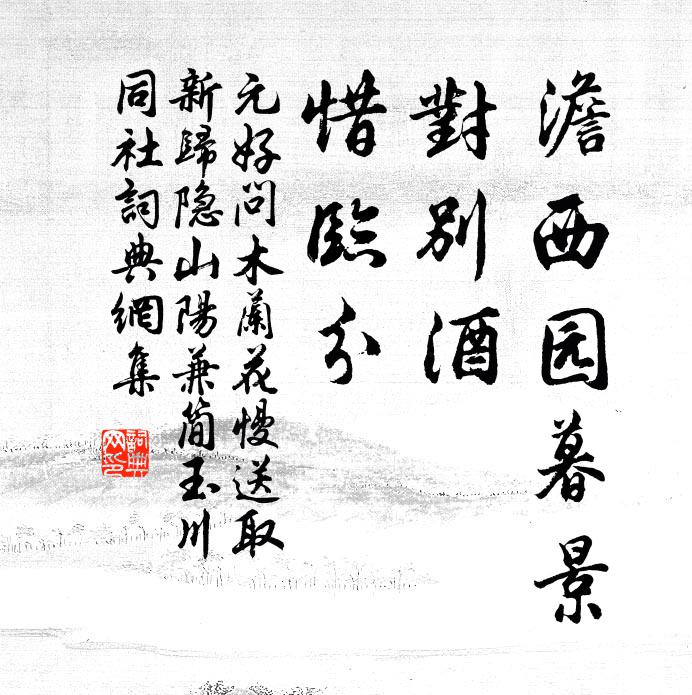 澹西园暮景
對別酒
惜臨分
元好问木蘭花慢送取
新歸隐山陽兼简玉川
同社詞典網集
詞典网印